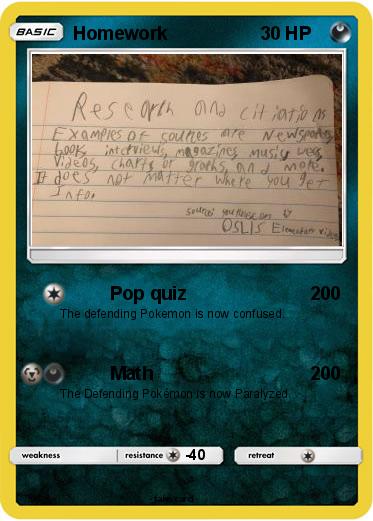 BASIC Homework 30 HP
Research and citiations
Examples of sources are Newspapers,
books, interviews, magazines, music, uses,
Videos, charts or graphs, and more.
It does not matter where you get
Info.
source: by
OSLIS Elementary videos
Pop quiz 200
The defending Pokemon is now confused.
Math 200
The Defending Pokemon is now Paralyzed.
weakness resistance -40 retreat